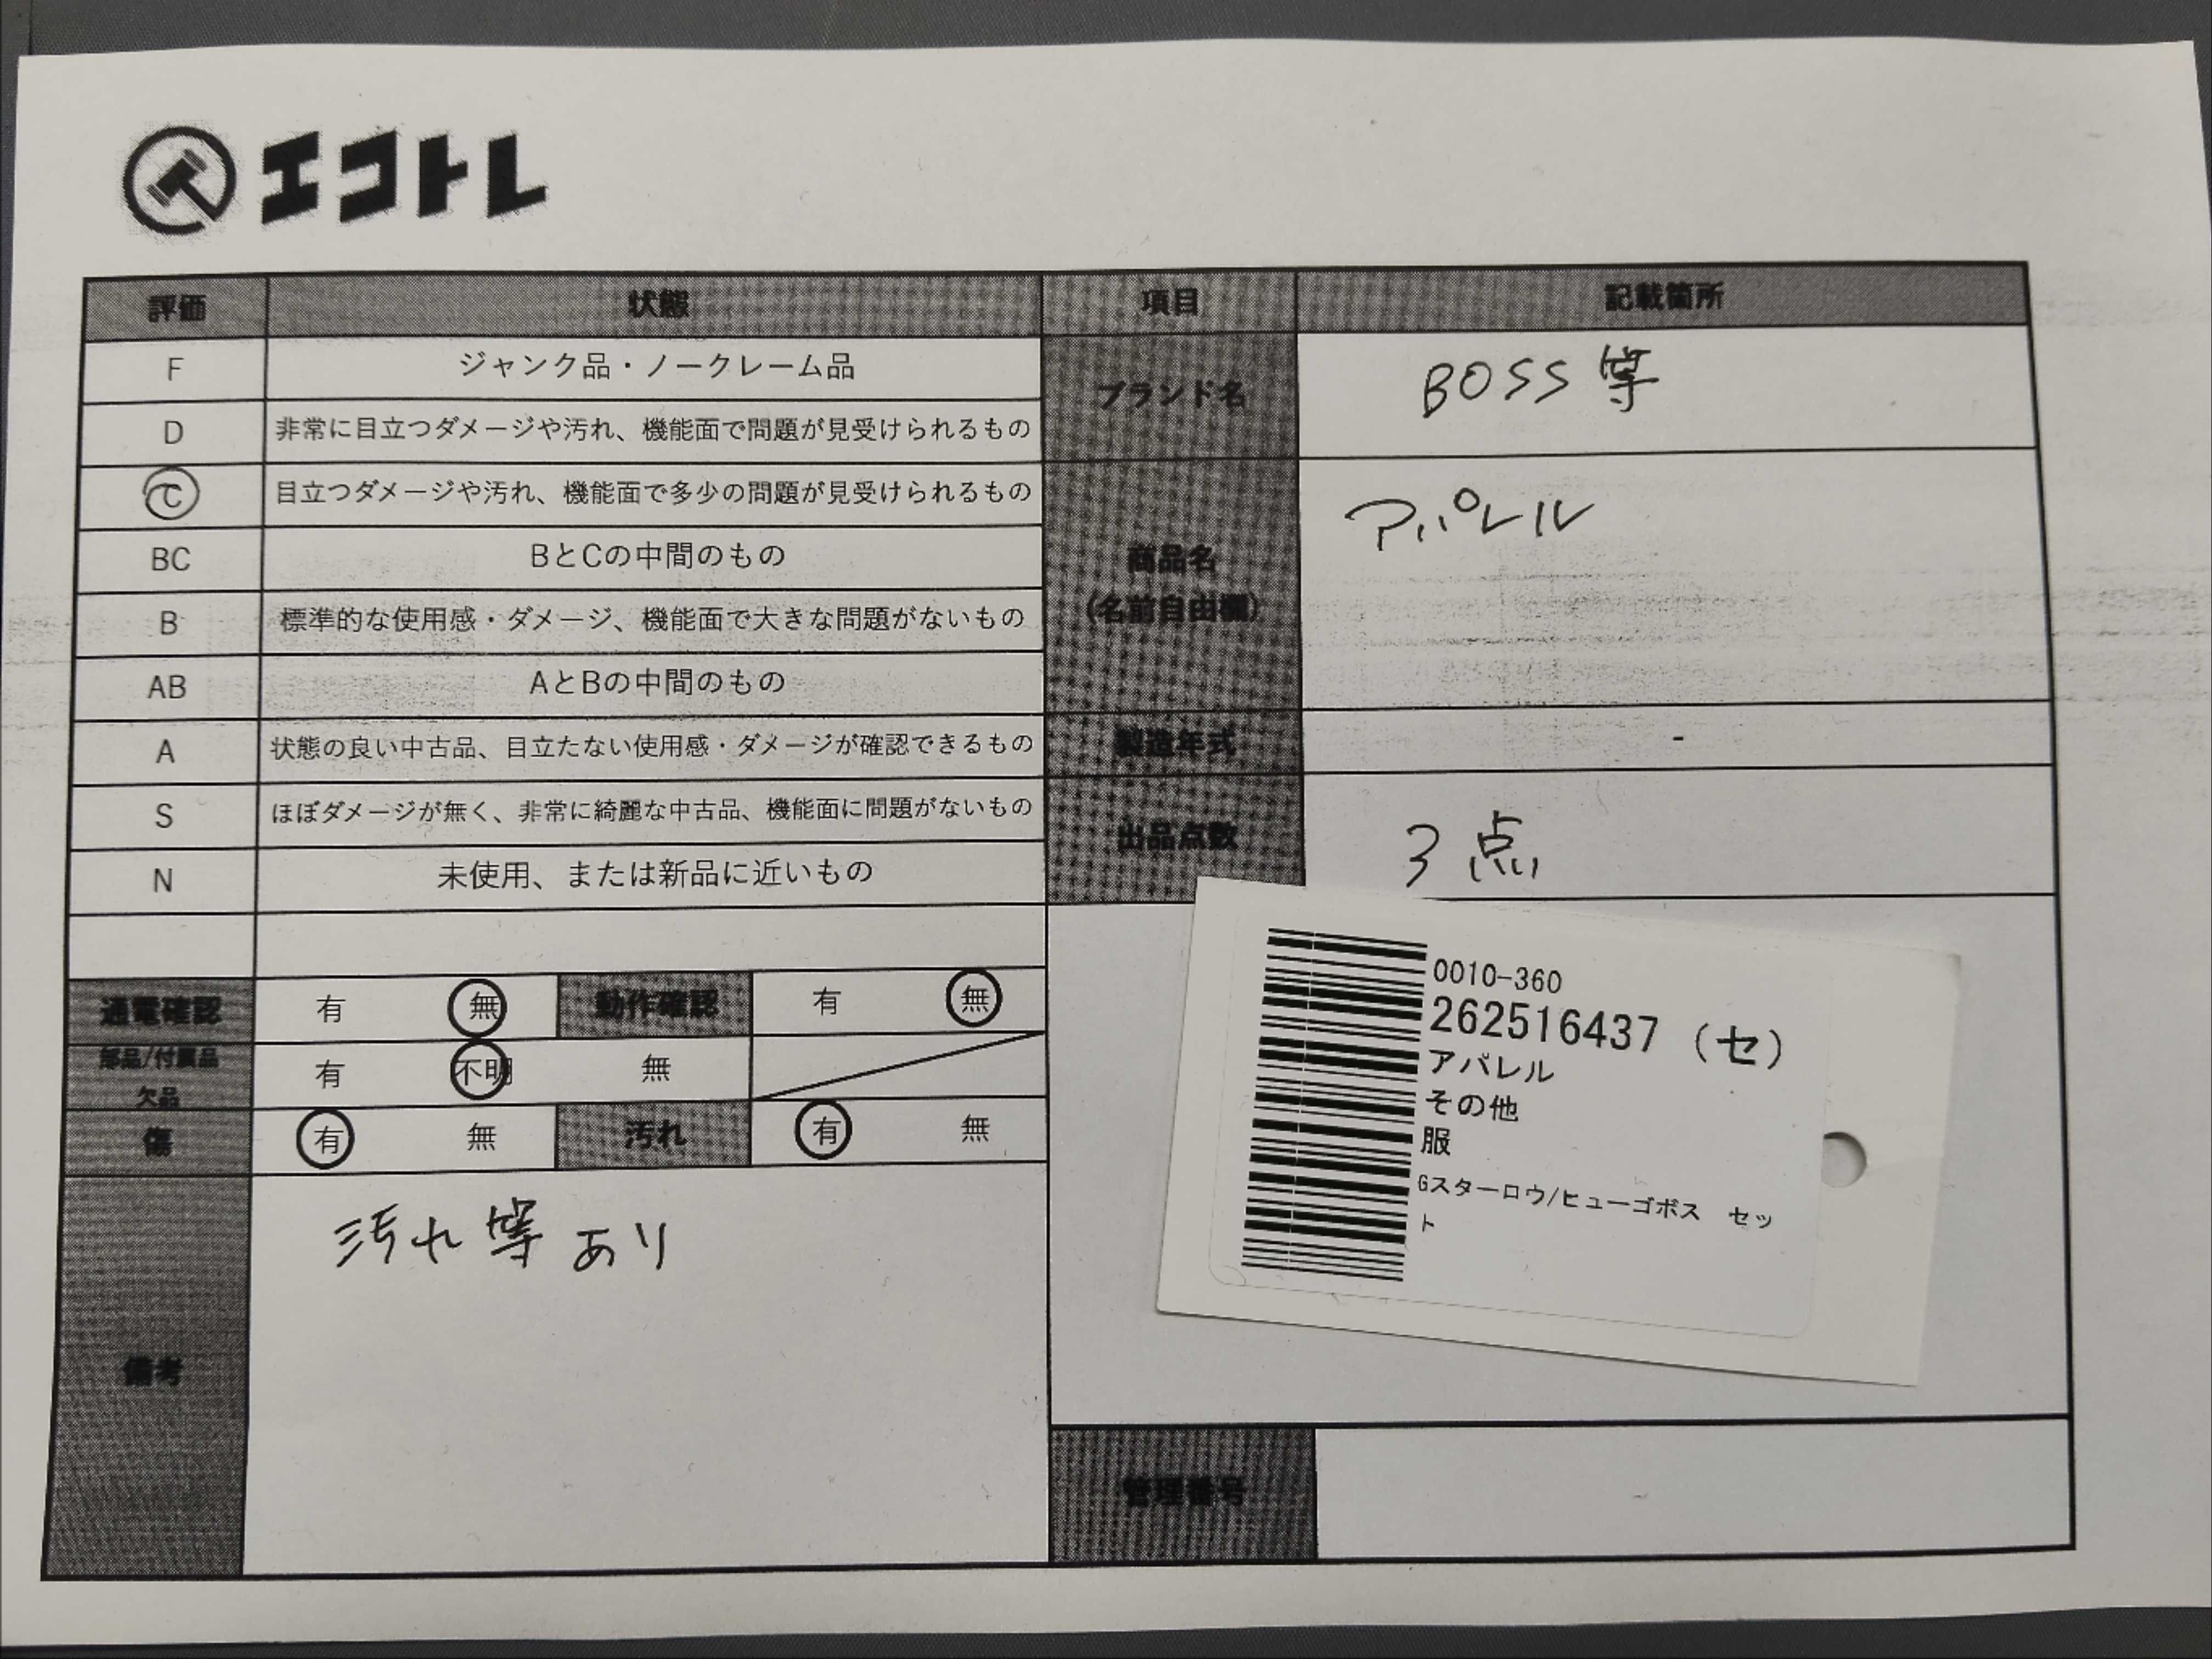 エコトレ
評価 状態 項目 記載箇所
F ジャンク品・ノークレーム品
D 非常に目立つダメージや汚れ、機能面で問題が見受けられるもの
C 目立つダメージや汚れ、機能面で多少の問題が見受けられるもの
BC BとCの中間のもの
B 標準的な使用感・ダメージ、機能面で大きな問題がないもの
AB AとBの中間のもの
A 状態の良い中古品、目立たない使用感・ダメージが確認できるもの
S ほぼダメージが無く、非常に綺麗な中古品、機能面に問題がないもの
N 未使用、または新品に近いもの
ブランド名 BOSS 等
商品名 アパレル
(名前自由欄)
製造年式 -
出品点数 3点
通電確認 有 無 動作確認 有 無
部品/付属品
欠品 有 不明 無
傷 有 無 汚れ 有 無
備考 汚れ等あり
0010-360
262516437 (セ)
アパレル
その他
服
Gスターロウ/ヒューゴボス セッ
ト
管理番号 -